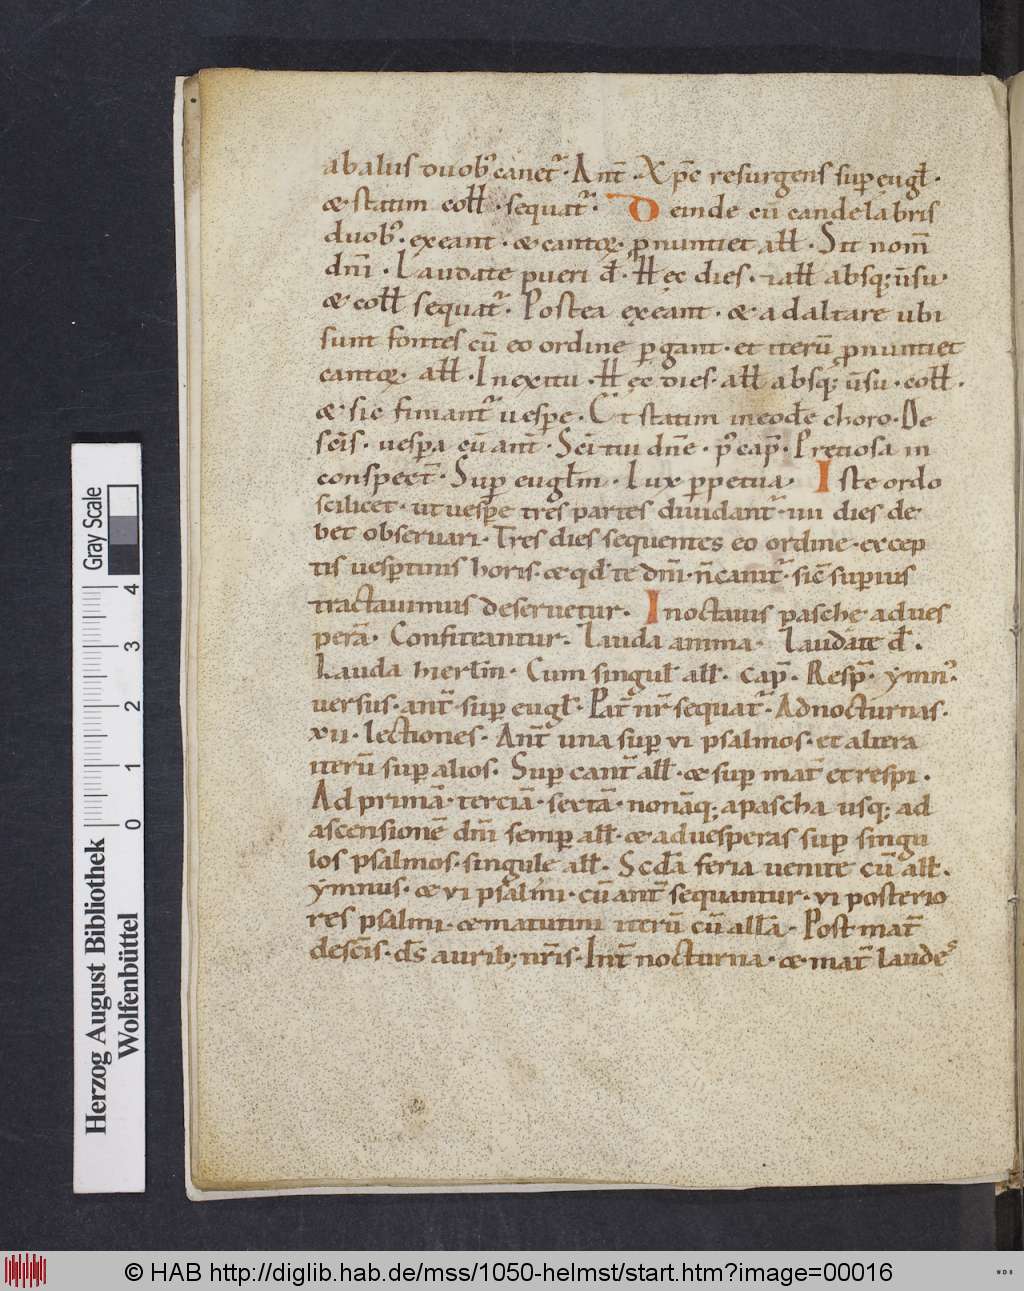 ab aliis duob᷒ canet᷑ · Ant̄ · Xp̄e resurgens sup eugl̄ ·
& statim coll̄ · sequat᷑ · Deinde cū candelabris
duob᷒ · exeant · & cantor · pnuntiet all̄ · Sit nom̄
dn̄i · Laudate pueri d̄ · Hęc dies · & all̄ absq; ūsu ·
& coll̄ sequat᷑ · Postea exeant · & ad altare ubi
sunt fontes cū eo ordine pgant · et iterū pronuntiet
cantor · all̄ · In exitu · Hęc dies · all̄ absq; ūsu · coll̄ ·
& sic finiant᷑ uespe · Et statim in eodē choro · De
sc̄is · uespa cū ant̄ · Sc̄i tui dn̄e · p᷒ cap̄ · Pretiosa in
conspect̄ · Sup eugl̄m · Lux ppetua · Iste ordo
scilicet · ut uespe tres partes diuidant᷑ · iiii dies de
bet obseruari · Tres dies sequentes eo ordine · excep
tis uesptinis horis · & qd̄ te dm̄ · n̄ canit᷑ · sic̄ superius
tractauimus deseruetur · In octauis pasche ad ues
perā · Confiteantur · Lauda anima · Laudate d̄ ·
Lauda hierl̄m · Cum singul̄ all̄ · Cap̄ · Resp̄ · ymn᷒ ·
uersus · ant̄ · sup eugl̄ · Pat̄ nr̄ sequat᷑ · Ad nocturnas ·
xii · lectiones · Ant̄ una sup vi psalmos · et altera
iterū sup alios · Sup cant̄ all̄ · & sup mat̄ et respi ·
Ad primā · terciā · sextā · nonāq; a pascha usq; ad
ascensionē dn̄i semp all̄ · & ad uesperas sup singu
los psalmos · singule all̄ · Scd̄a feria uenite cū all̄ ·
ymnus · & vi psalmi · cū ant̄ sequantur · vi posterio
res psalmi · & matutini iterū cū all̄a · Post mat̄
desc̄is · ds̄ aurib; nr̄is · Int̄ nocturna · & mat̄ laudes
Gray Scale
0 1 2 3 4
Herzog August Bibliothek
Wolfenbüttel
© HAB http://diglib.hab.de/mss/1050-helmst/start.htm?image=00016